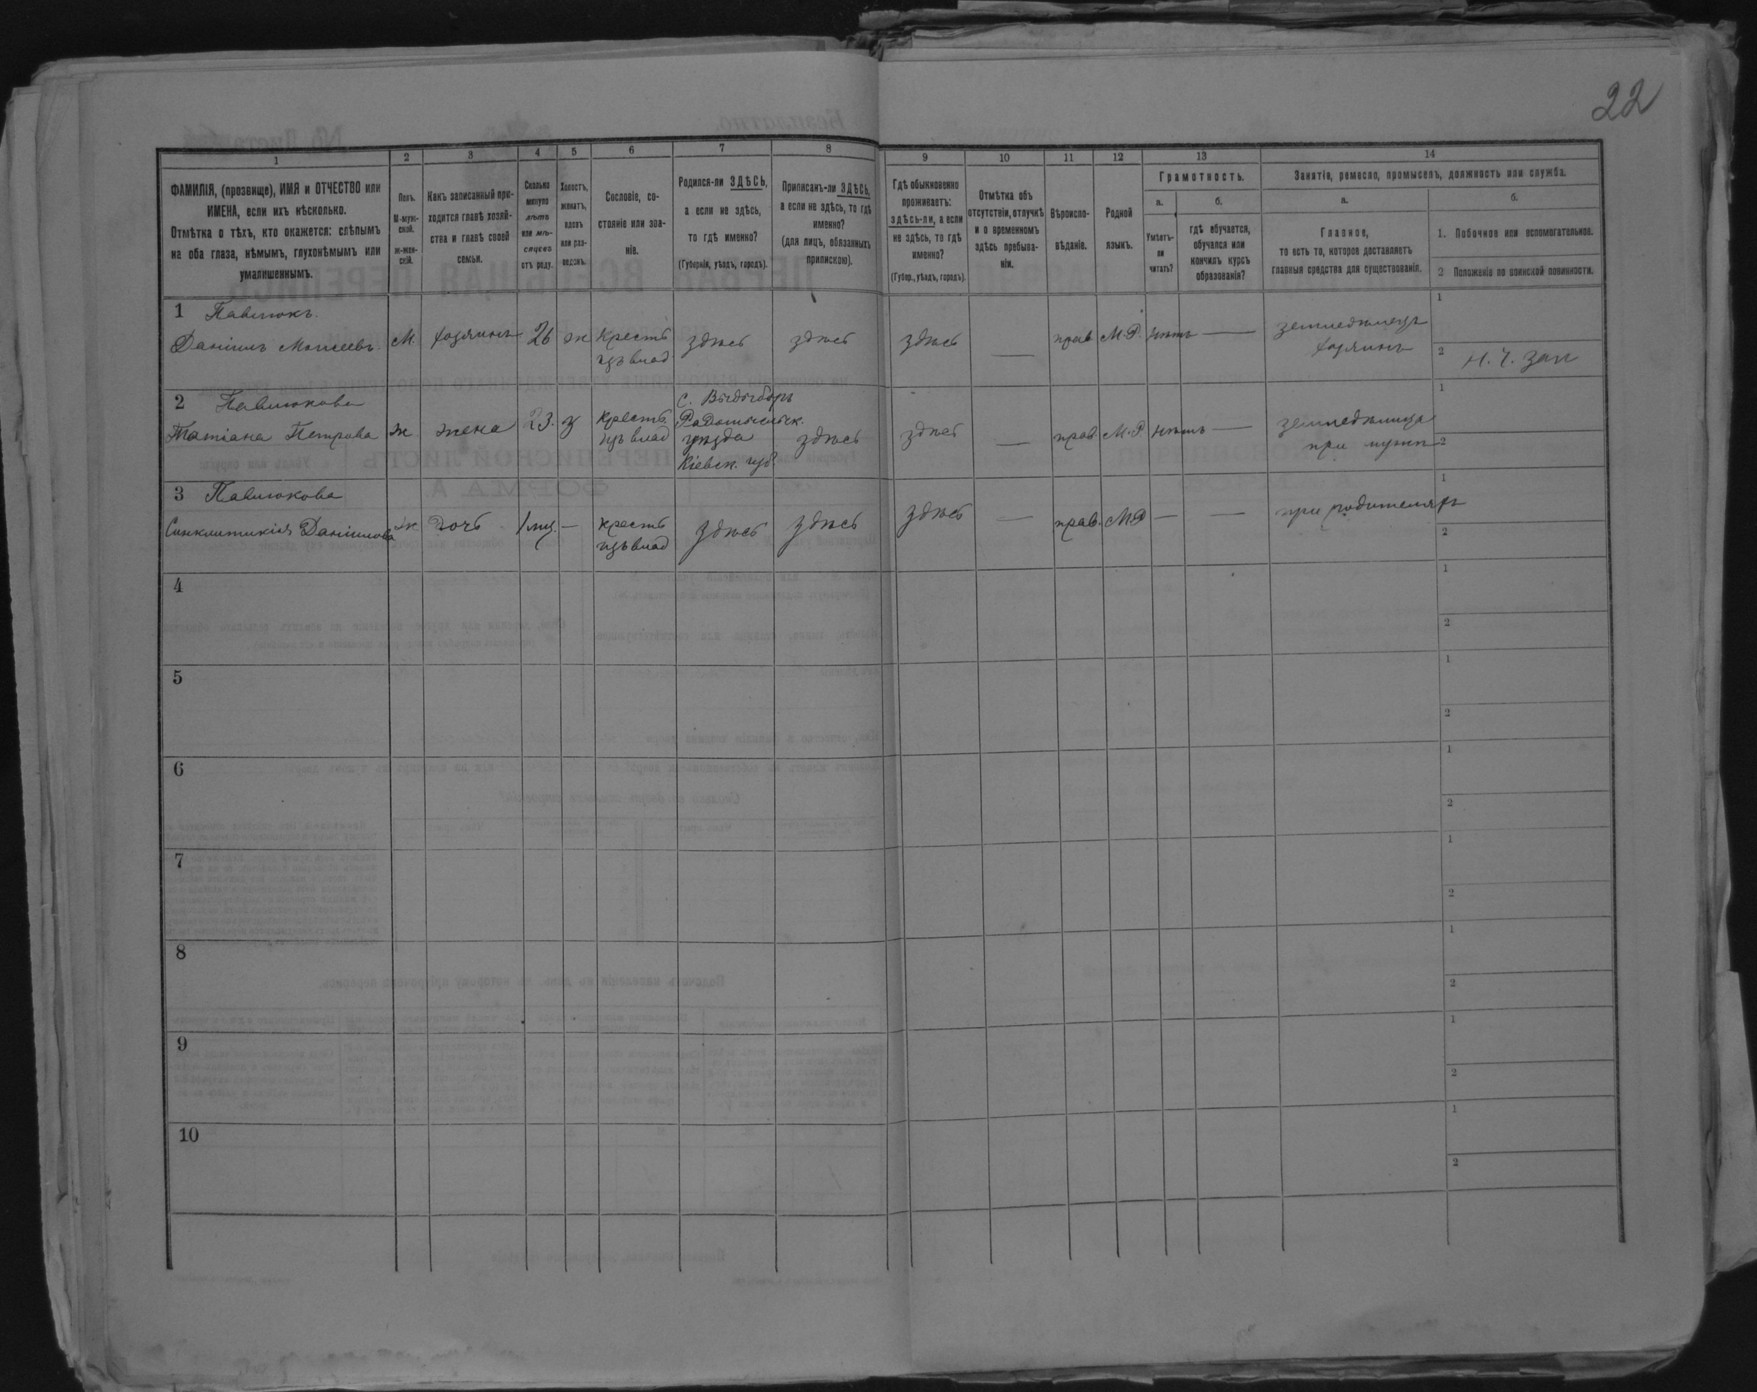 22
1 2 3 4 5 6 7 8 9 10 11 12 13 14
ФАМИЛІЯ, (прозвище), ИМЯ и ОТЧЕСТВО или
ИМЕНА, если ихъ нѣсколько.
Отмѣтка о тѣхъ, кто окажется: слѣпымъ
на оба глаза, нѣмымъ, глухонѣмымъ или
умалишеннымъ.
Полъ.
М-муж-
ской.
ж-жен-
скій.
Какъ записанный при-
ходится главѣ хозяй-
ства и главѣ своей
семьи.
Сколько
минуло
лѣтъ
или мѣ-
сяцевъ
отъ роду.
Холостъ,
женатъ,
вдовъ
или раз-
веденъ.
Сословіе, со-
стояніе или зва-
ніе.
Родился-ли ЗДѢСЬ,
а если не здѣсь,
то гдѣ именно?
(Губернія, уѣздъ, городъ).
Приписанъ-ли ЗДѢСЬ,
а если не здѣсь, то гдѣ
именно?
(для лицъ, обязанныхъ
припискою).
Гдѣ обыкновенно
проживаетъ:
здѣсь-ли, а если
не здѣсь, то гдѣ
именно?
(Губер., уѣздъ, городъ).
Отмѣтка объ
отсутствіи, отлучкѣ
и о временномъ
здѣсь пребыва-
ніи.
Вѣроиспо-
вѣданіе.
Родной
языкъ.
Грамотность.
а.
Умѣетъ-
ли
читать?
б.
гдѣ обучается,
обучался или
кончилъ курсъ
образованія?
Занятіе, ремесло, промыселъ, должность или служба.
а.
Главное,
то есть то, которое доставляетъ
главныя средства для существованія.
б.
1. Побочное или вспомогательное.
2 Положеніе по воинской повинности.
1 Павлюкъ
Даніилъ Моисеевъ М. хозяинъ 26 ж Крестъ
изъ влад здѣсь здѣсь здѣсь — прав М.Р. нѣтъ — земледѣлецъ
хозяинъ
1
2 н. ч. зап
2 Павлюкова
Татіана Петрова ж жена 23. з крестъ
изъ влад
с. Выдыборъ
Радомысльск.
уѣзда
Кіевск. губ.
здѣсь здѣсь — прав. М.Р нѣтъ — земледѣлица
при мужѣ
1
2
3 Павлюкова
Синклитикія Даніилова ж дочь 1 мц. — крестъ
изъ влад здѣсь здѣсь здѣсь — прав. М.Р — — при родителяхъ
1
2
4
1
2
5
1
2
6
1
2
7
1
2
8
1
2
9
1
2
10
1
2